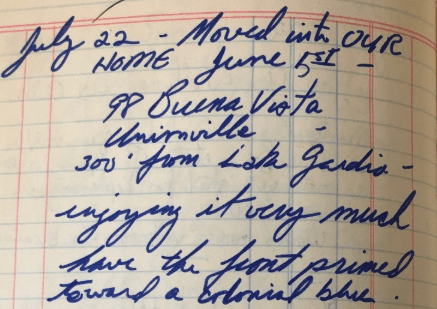 July 22 - Moved into OUR
HOME June 1ST -
98 Buena Vista
Unionville -
300' from Lake Gardia -
enjoying it very much
have the front primed
toward a colonial blue.